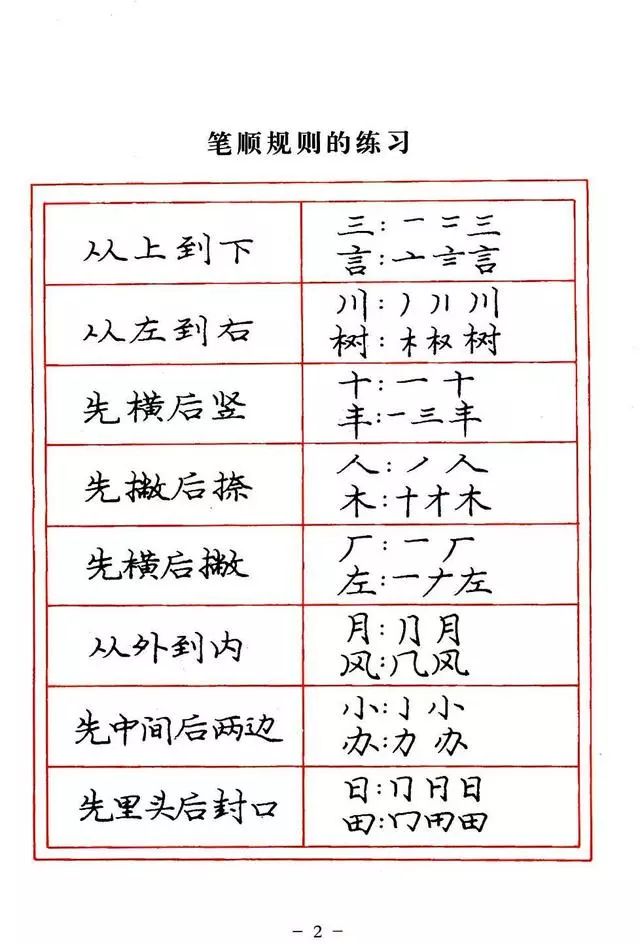 笔顺规则的练习
从上到下
三:一 二 三
言:亠 言
从左到右
川:丿 川
树:木 权 树
先横后竖
十:一 十
丰:一 三 丰
先撇后捺
人:丿 人
木:十 才 木
先横后撇
厂:一 厂
左:一 𠂇 左
从外到内
月:⺆ 月
风:几 风
先中间后两边
小:亅 小
办:力 办
先里头后封口
日:冂 日
田:冂 田
- 2 -